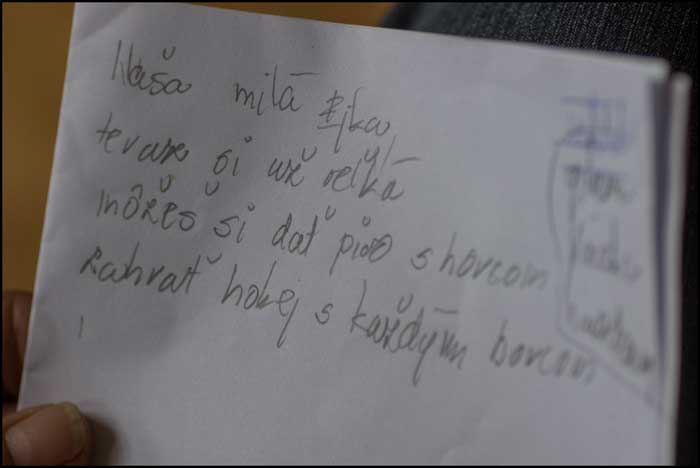 Naša milá Ejka,
teraz si už veľká
môžeš si dať pivo s horcom
zahrať hokej s každým borcom